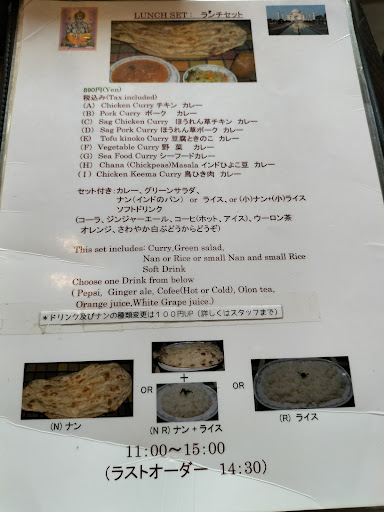 LUNCH SET： ランチセット
890円(Yen)
税込み(Tax included)
(A) Chicken Curry チキン カレー
(B) Pork Curry ポーク カレー
(C) Sag Chicken Curry ほうれん草チキン カレー
(D) Sag Pork Curry ほうれん草ポーク カレー
(E) Tofu kinoko Curry 豆腐ときのこ カレー
(F) Vegetable Curry 野 菜 カレー
(G) Sea Food Curry シーフードカレー
(H) Chana (Chickpeas)Masala インドひよこ豆 カレー
(I) Chicken Keema Curry 鳥ひき肉 カレー
セット付き：カレー、グリーンサラダ、
ナン(インドのパン) or ライス、or (小)ナン+(小)ライス
ソフトドリンク
(コーラ、ジンジャーエール、コーヒ(ホット、アイス)、ウーロン茶
オレンジ、さわやか白ぶどうからどうぞ)
This set includes: Curry,Green salad,
Nan or Rice or small Nan and small Rice
Soft Drink
Choose one Drink from below
( Pepsi, Ginger ale, Cofee(Hot or Cold), Olon tea,
Orange juice,White Grape juice.)
＊ドリンク及びナンの種類変更は１００円UP（詳しくはスタッフまで）
OR
+
OR
(N) ナン
(N R) ナン + ライス
(R) ライス
11:00～15:00
(ラストオーダー 14:30)